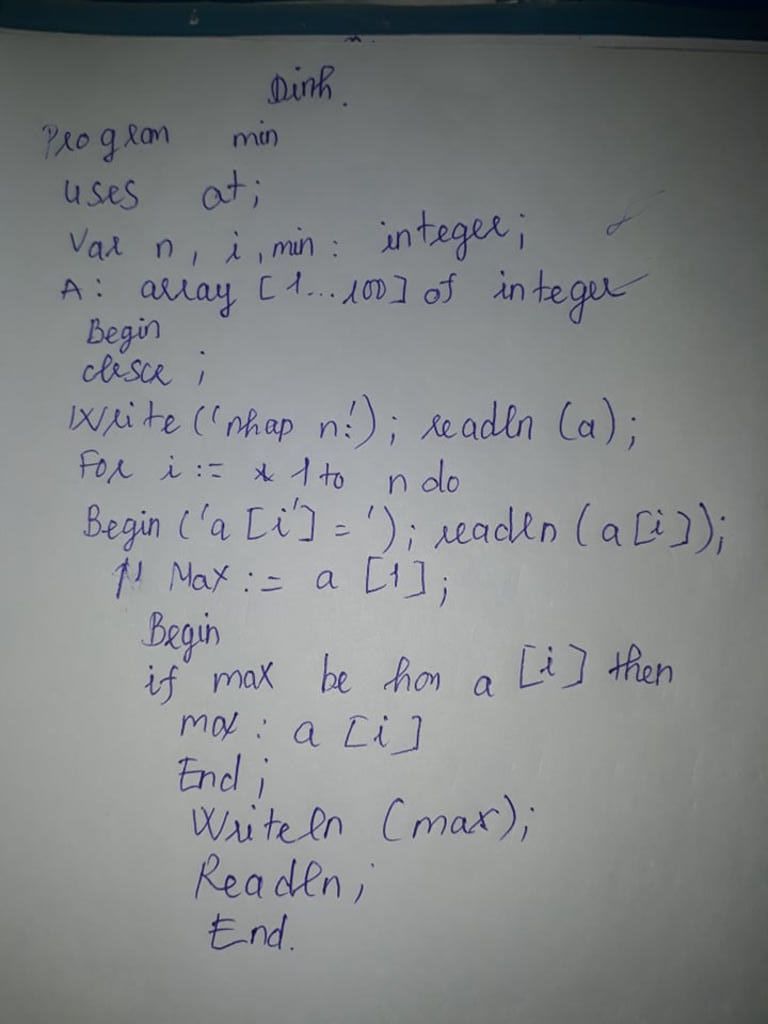 Dinh.
Program min
uses at;
Var n, i, min: integer;
A: array [1...100] of integer
Begin
clscr;
Write ('nhap n:'); readln (a);
For i := 1 to n do
Begin ('a [i'] = '); readln (a[i]);
Max := a [1];
Begin
if max be hon a [i] then
max: a [i]
End;
Writeln (max);
Readln;
End.